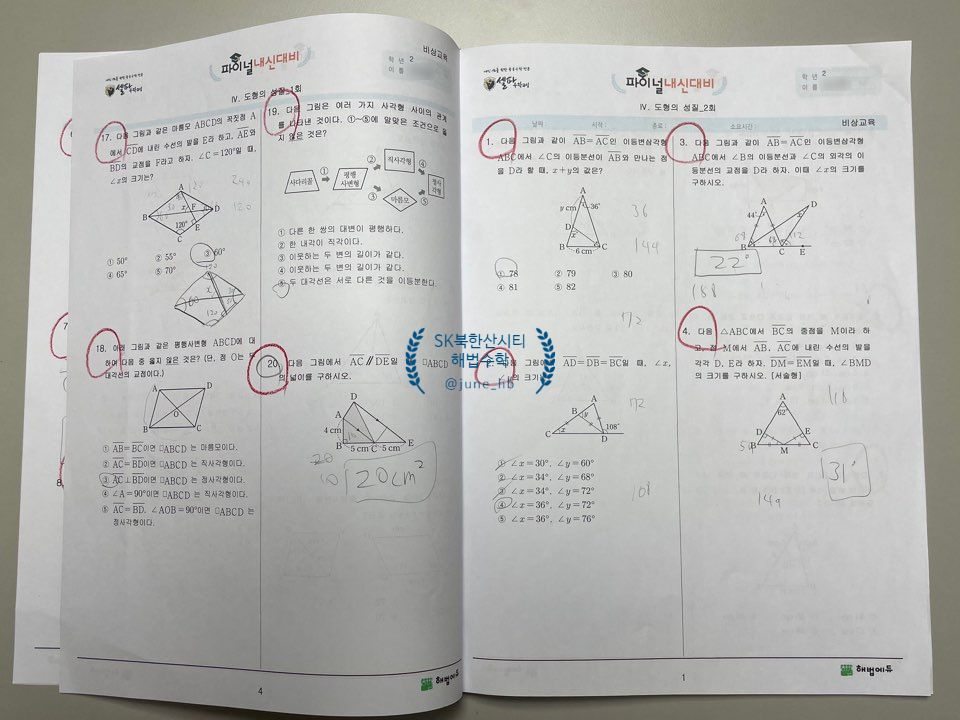 파이널내신대비
비상교육
학 년 2
이 름
셀파
해법수학
IV. 도형의 성질_1회
17. 다음 그림과 같은 마름모 ABCD의 꼭짓점 A
에서 CD에 내린 수선의 발을 E라 하고, AE와
BD의 교점을 F라고 하자. ∠C=120°일 때,
∠x의 크기는?
A
B
C
D
E
F
x
120°
① 50°
② 55°
③ 60°
④ 65°
⑤ 70°
18. 아래 그림과 같은 평행사변형 ABCD에 대
하여 다음 중 옳지 않은 것은? (단, 점 O는 두
대각선의 교점이다.)
A
D
O
B
C
① AB=BC이면 □ABCD 는 마름모이다.
② AC=BD이면 □ABCD 는 직사각형이다.
③ AC⊥BD이면 □ABCD 는 정사각형이다.
④ ∠A=90°이면 □ABCD 는 직사각형이다.
⑤ AC=BD, ∠AOB=90°이면 □ABCD 는
정사각형이다.
19. 다음 그림은 여러 가지 사각형 사이의 관계
를 나타낸 것이다. ①~⑤에 알맞은 조건으로 옳
지 않은 것은?
사다리꼴
①
평행
사변형
②
직사각형
④
정사
각형
③
마름모
⑤
① 다른 한 쌍의 대변이 평행하다.
② 한 내각이 직각이다.
③ 이웃하는 두 변의 길이가 같다.
④ 이웃하는 두 변의 길이가 같다.
⑤ 두 대각선은 서로 다른 것을 이등분한다.
20. 다음 그림에서 AC∥DE일 □ABCD
의 넓이를 구하시오.
D
A
4 cm
B
5 cm
C
5 cm
E
20cm²
4
해법에듀
파이널내신대비
학 년 2
이 름
셀파
해법수학
IV. 도형의 성질_2회
날짜 :
시작 :
종료 :
소요시간 :
비상교육
1. 다음 그림과 같이 AB=AC인 이등변삼각형
ABC에서 ∠C의 이등분선이 AB와 만나는 점
을 D라 할 때, x+y의 값은?
A
y cm
36°
D
x°
B
6 cm
C
36
144
① 78
② 79
③ 80
④ 81
⑤ 82
72
다음 그림에 AD=DB=BC일 때, ∠x,
의 크기는?
A
B
y
x
108°
C
D
72
108
① ∠x=30°, ∠y=60°
② ∠x=34°, ∠y=68°
③ ∠x=34°, ∠y=72°
④ ∠x=36°, ∠y=72°
⑤ ∠x=36°, ∠y=76°
3. 다음 그림과 같이 AB=AC인 이등변삼각형
ABC에서 ∠B의 이등분선과 ∠C의 외각의 이
등분선의 교점을 D라 하자. 이때 ∠x의 크기를
구하시오.
A
D
44°
x
B
C
E
22°
4. 다음 △ABC에서 BC의 중점을 M이라 하
고, 점 M에서 AB, AC에 내린 수선의 발을
각각 D, E라 하자. DM=EM일 때, ∠BMD
의 크기를 구하시오. [서술형]
118
A
62°
D
E
B
M
C
31°
1
해법에듀
SK북한산시티
해법수학
@june_hb